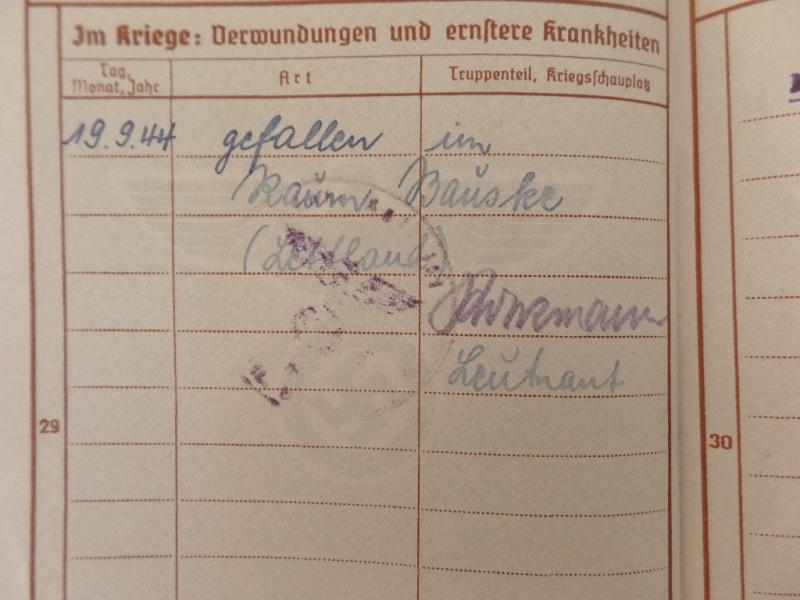 Im Kriege: Verwundungen und ernstere Krankheiten
Tag, Monat, Jahr
Art
Truppenteil, Kriegsschauplatz
19.9.44 gefallen im
Raum Bauske
(Lettland)
Leutnant
29
30